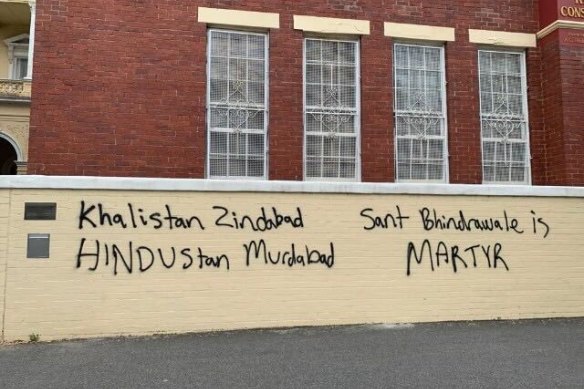 CONS
Khalistan Zindabad
HINDUStan Murdabad
Sant Bhindrawale is
MARTYR